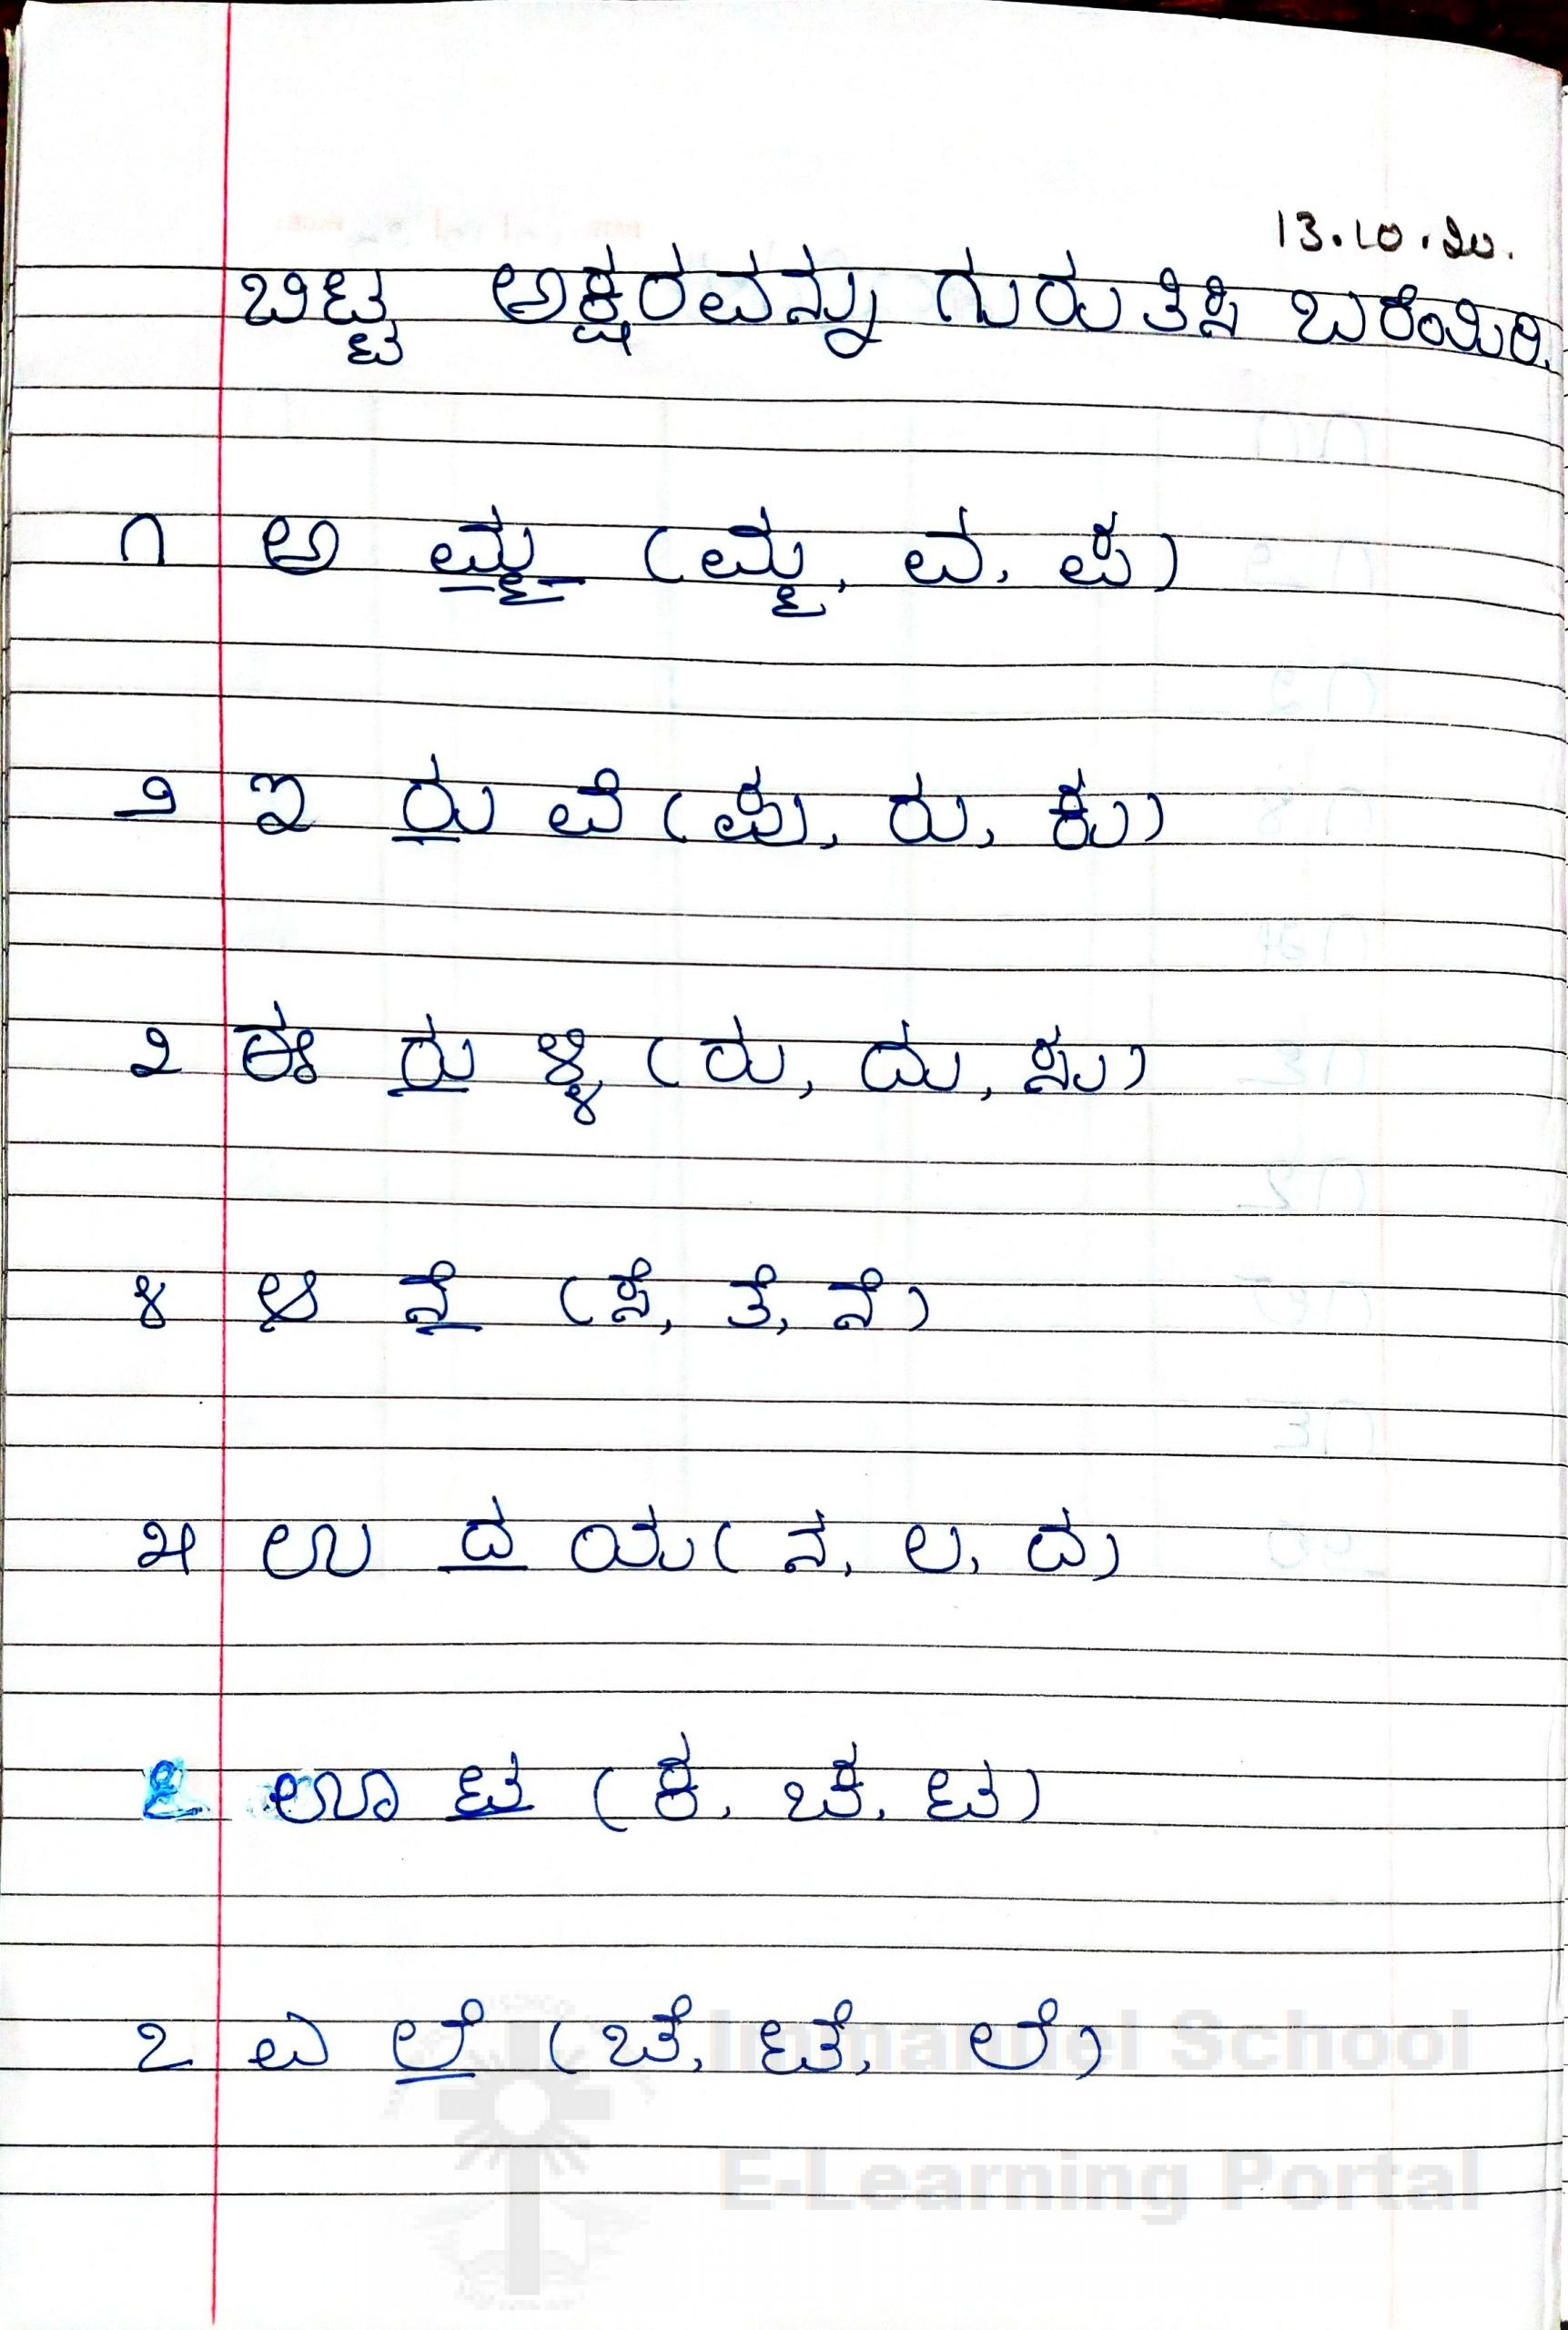 13.10.20.
ಬಿಟ್ಟ ಅಕ್ಷರವನ್ನು ಗುರುತಿಸಿ ಬರೆಯಿರಿ.
೧ ಅ ಮ್ಮ (ಮ್ಮ, ವ, ಪ)
೨ ಇ ರು ವೆ (ಪು, ರು, ಕು)
೩ ಈ ರು ಳ್ಳಿ (ರು, ದು, ಸು)
೪ ಆ ನೆ (ಸೆ, ತೆ, ನೆ)
೫ ಉ ದ ಯ (ನ, ಲ, ದ)
೬ ಊ ಟ (ಕ, ಚ, ಟ)
೭ ಎ ಲೆ (ಚೆ, ಟೆ, ಲೆ)
Immanuel School
E-Learning Portal